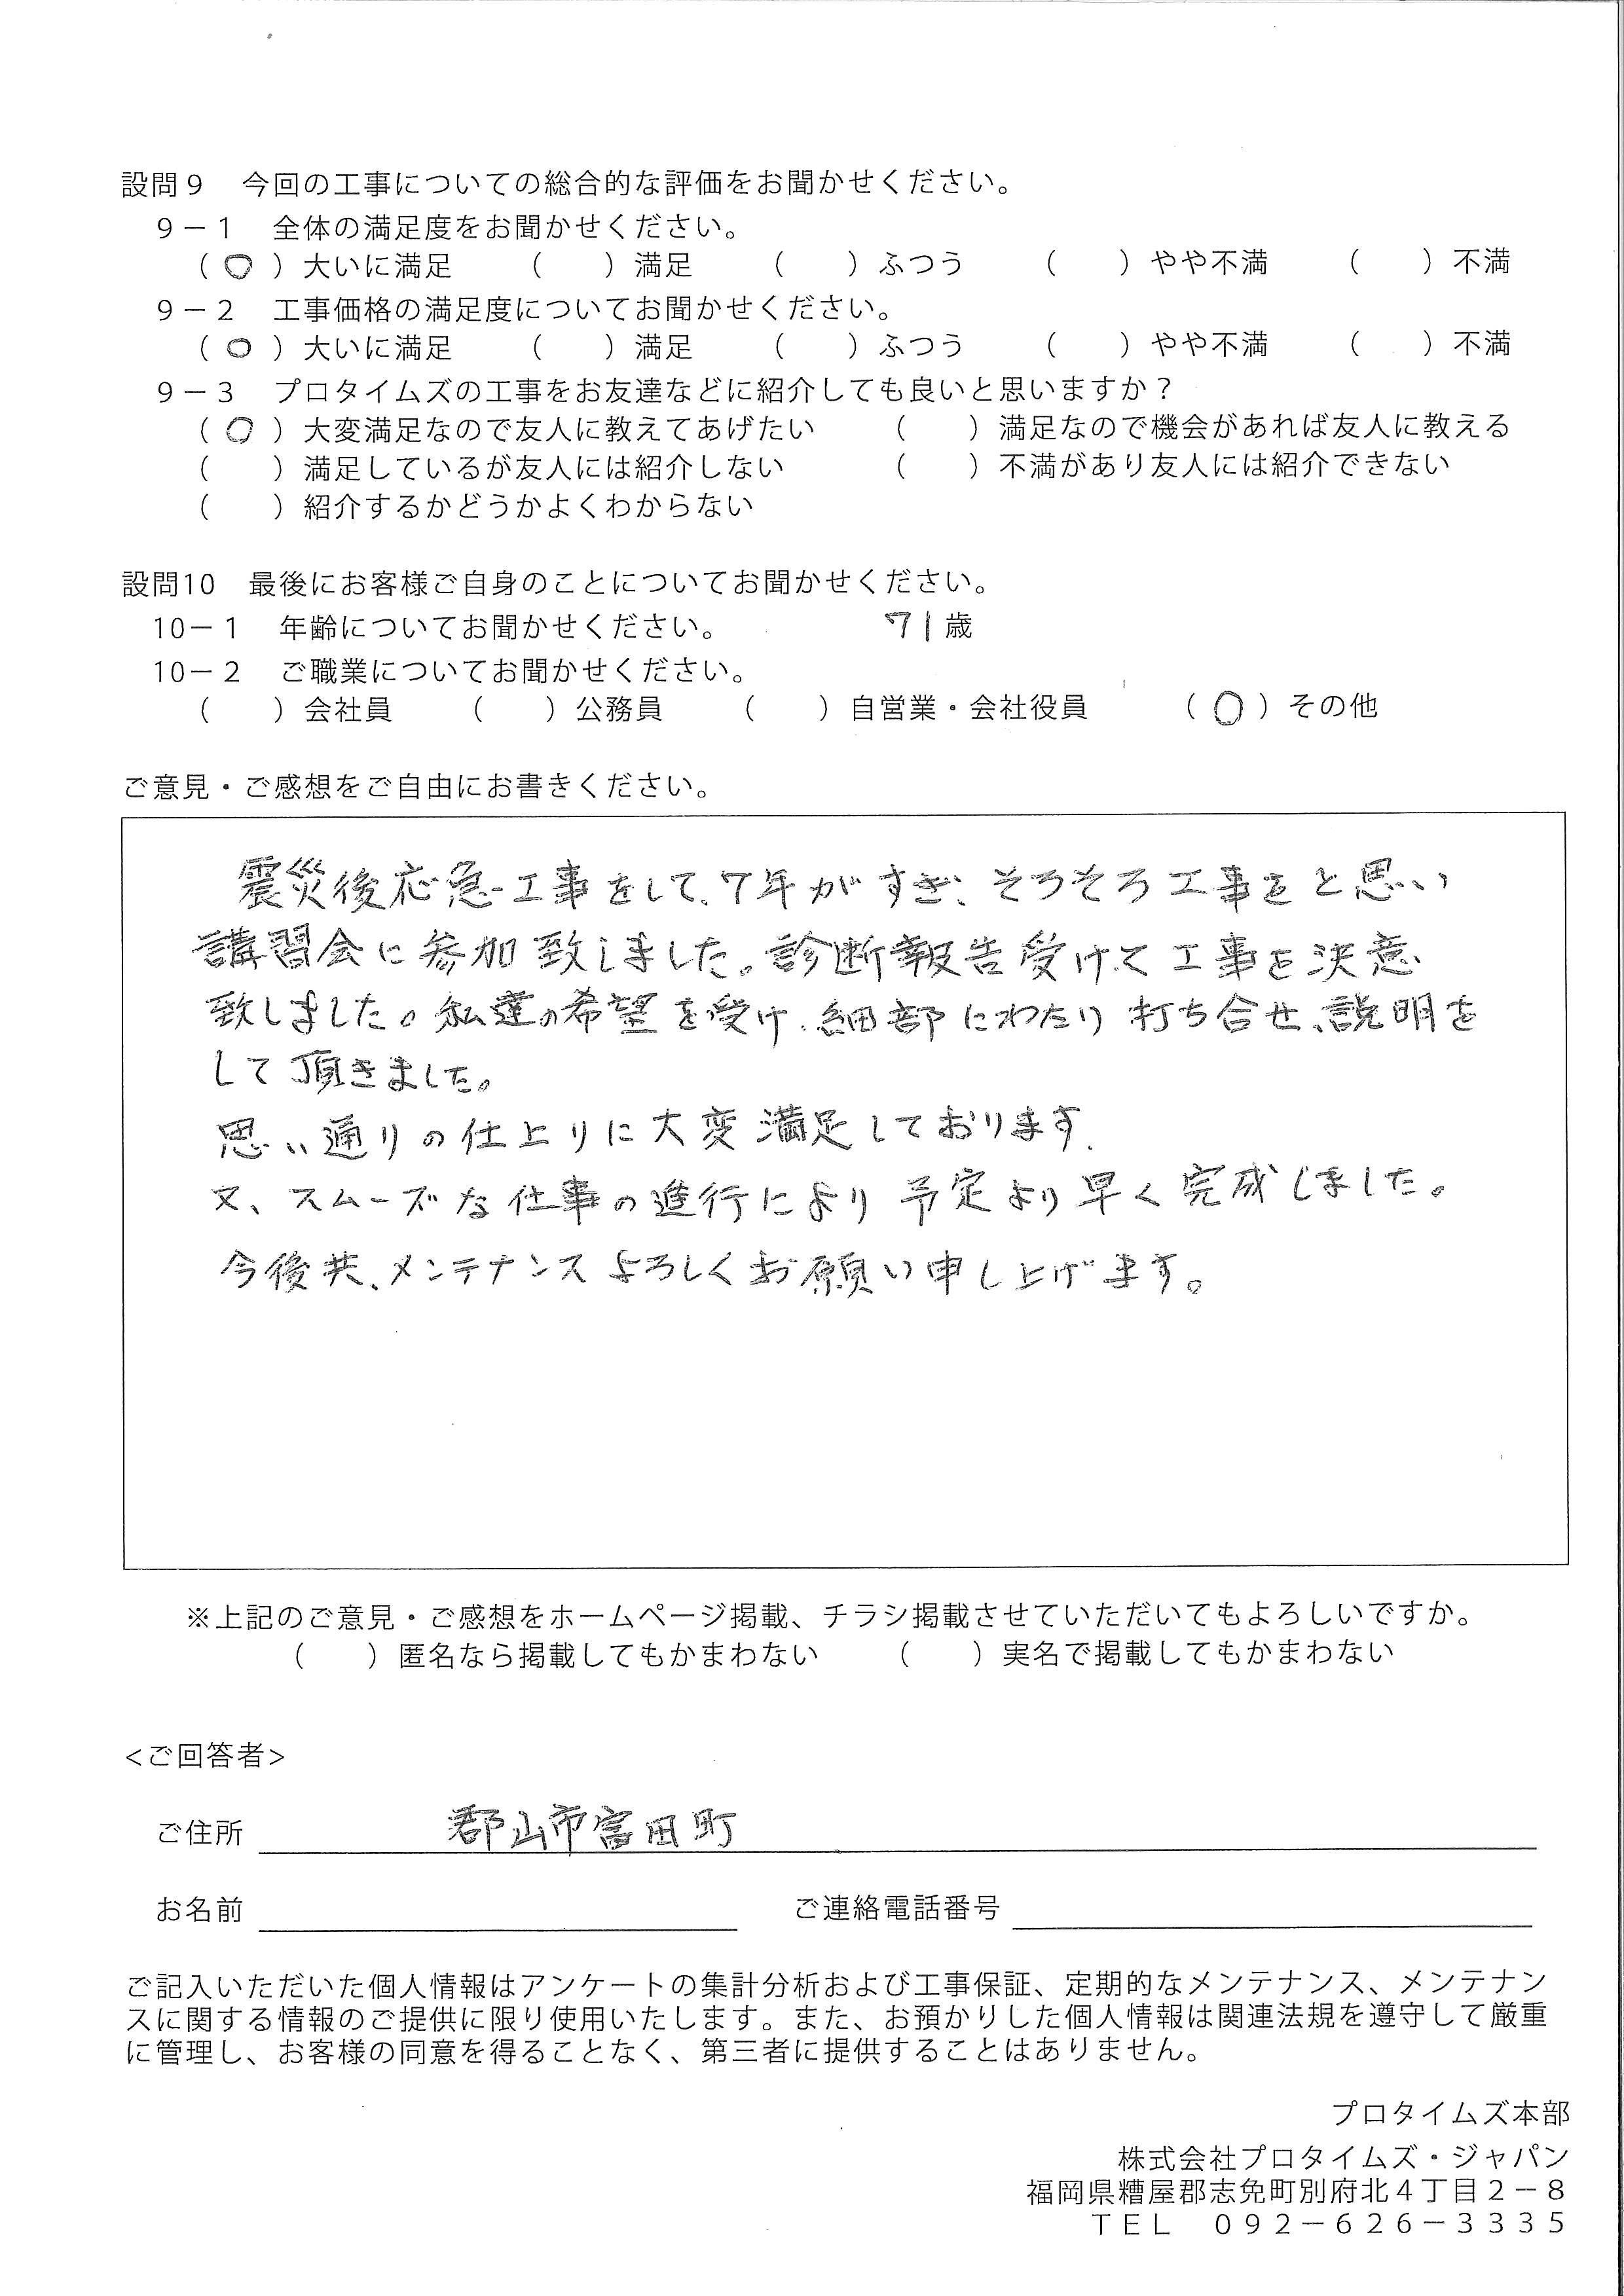 設問９　今回の工事についての総合的な評価をお聞かせください。
９－１　全体の満足度をお聞かせください。
（ ○ ）大いに満足　（　　）満足　（　　）ふつう　（　　）やや不満　（　　）不満
９－２　工事価格の満足度についてお聞かせください。
（ ○ ）大いに満足　（　　）満足　（　　）ふつう　（　　）やや不満　（　　）不満
９－３　プロタイムズの工事をお友達などに紹介しても良いと思いますか？
（ ○ ）大変満足なので友人に教えてあげたい　（　　）満足なので機会があれば友人に教える
（　　）満足しているが友人には紹介しない　（　　）不満があり友人には紹介できない
（　　）紹介するかどうかよくわからない
設問10　最後にお客様ご自身のことについてお聞かせください。
10－１　年齢についてお聞かせください。　71歳
10－２　ご職業についてお聞かせください。
（　　）会社員　（　　）公務員　（　　）自営業・会社役員　（ ○ ）その他
ご意見・ご感想をご自由にお書きください。
震災後応急工事をして、7年がすぎ、そろそろ工事をと思い
講習会に参加致しました。診断報告受けて工事を決意
致しました。私達の希望を受け、細部にわたり打ち合せ、説明を
して頂きました。
思い通りの仕上りに大変満足しております。
又、スムーズな仕事の進行により予定より早く完成しました。
今後共、メンテナンスよろしくお願い申し上げます。
※上記のご意見・ご感想をホームページ掲載、チラシ掲載させていただいてもよろしいですか。
（　　）匿名なら掲載してもかまわない　（　　）実名で掲載してもかまわない
<ご回答者>
ご住所　郡山市富田町
お名前　ご連絡電話番号
ご記入いただいた個人情報はアンケートの集計分析および工事保証、定期的なメンテナンス、メンテナン
スに関する情報のご提供に限り使用いたします。また、お預かりした個人情報は関連法規を遵守して厳重
に管理し、お客様の同意を得ることなく、第三者に提供することはありません。
プロタイムズ本部
株式会社プロタイムズ・ジャパン
福岡県糟屋郡志免町別府北４丁目２－８
ＴＥＬ　０９２－６２６－３３３５